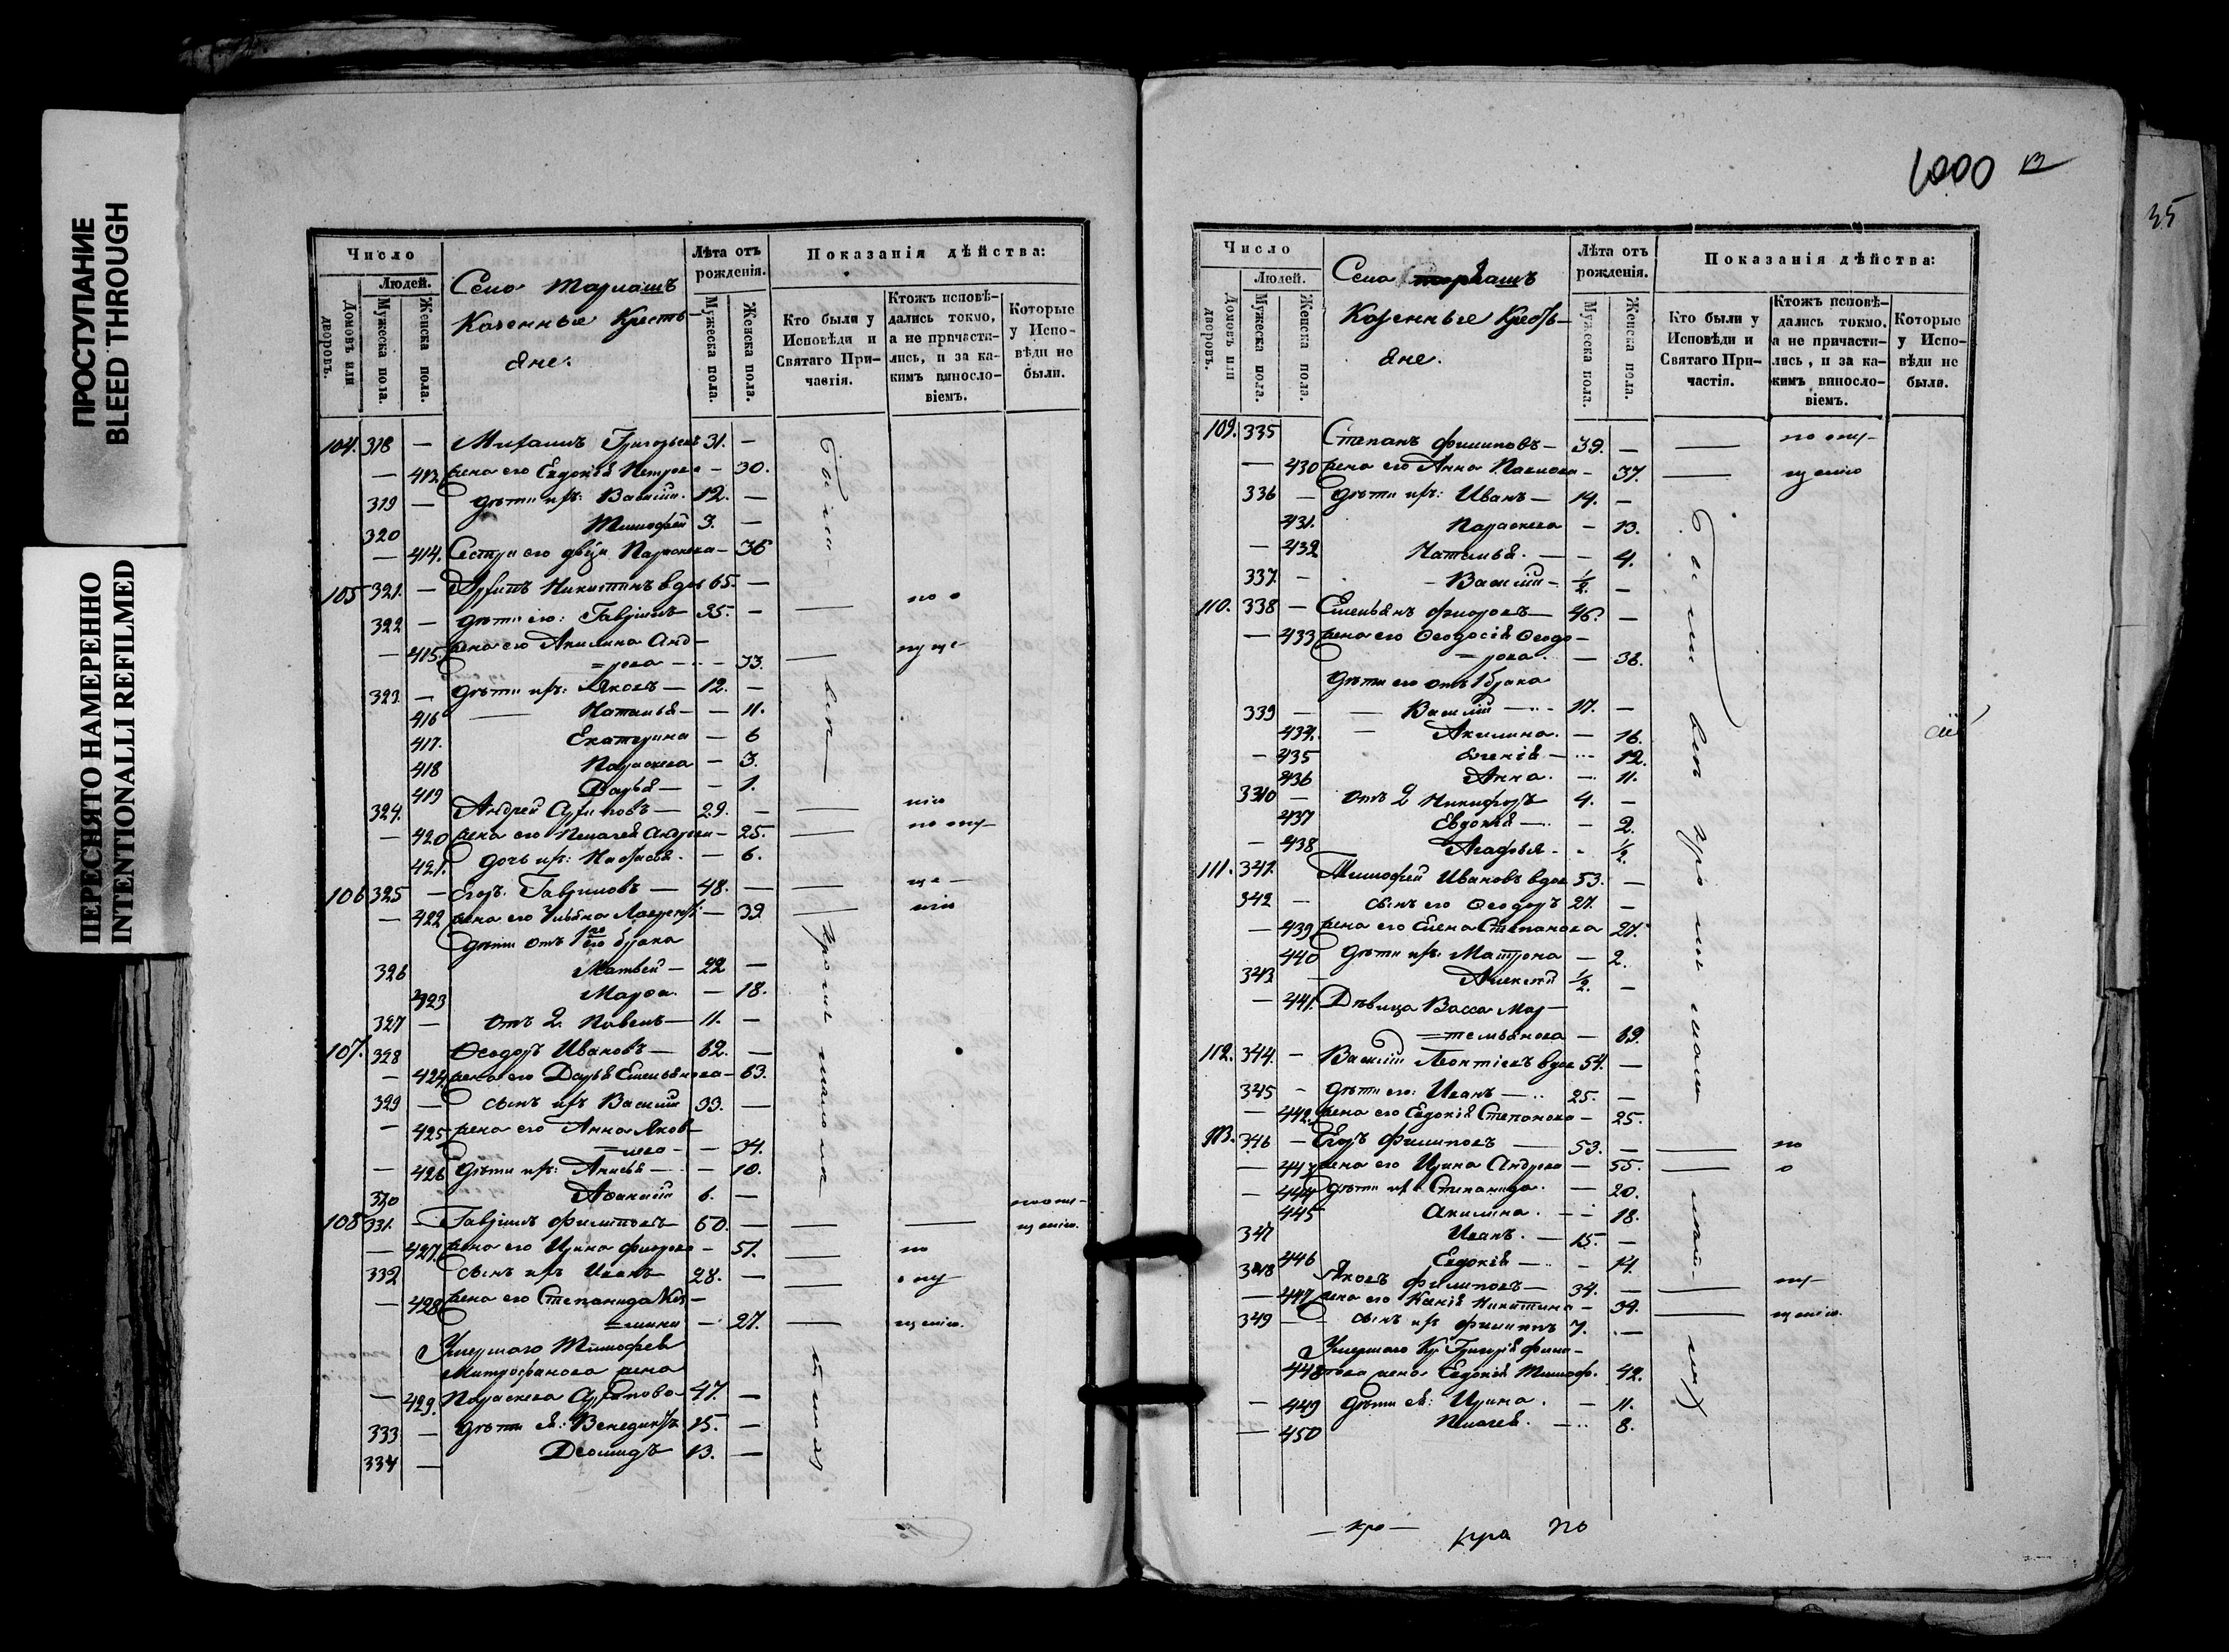 ПРОСТУПАНИЕ
BLEED THROUGH
ПЕРЕСНЯТО НАМЕРЕННО
INTENTIONALLI REFILMED
Число
Людей.
Домовъ или дворовъ.
Мужеска пола.
Женска пола.
Село Тарлашъ
Казенные Кресть-
яне.
Лѣта отъ рожденія.
Мужеска пола.
Женска пола.
Показанія дѣйства:
Кто были у Исповѣди и Святаго Причастія.
Ктожъ исповѣдались токмо, а не причастились, и за какимъ винословіемъ.
Которые у Исповѣди не были.
104. 318 — Григорьевъ 31. —
— 413. жена его Евдокія Петрова — 30.
319 — дѣти ихъ: Василій 12. —
320 Тимофей 3. —
— 414. Сестра его дѣвца Параскева — 36
105 321. — Никитинъ вдов 65. —
322 — дѣти его: Гаврiилъ 35. — — по о
— 415. жена его Акилина Анд-
=рѣева — — 33. — пуще
323 — дѣти ихъ: Яковъ — 12. —
416 Наталья — — 11.
417. Екатерина — 6
418 Параскева — 3.
419 Дарья — — 1.
324. Андрей — 29. — — нію
— 420 жена его Пелагея Андреева — 25. — по опу-
421. дочь ихъ: Настасья. — 6.
106 325 — Егоръ Гавриловъ — 48. — — ще-
— 422 жена его Ульяна Лаврентьева — 39 — нію
дѣти отъ 1го его брака
326 Матвей — 22 —
423 Марѳа — 18.
327 — отъ 2 Павелъ — 11. —
107. 328 Ѳеодоръ Ивановъ — 62. —
— 424 жена его Дарья Емельянова — 63.
329 — сынъ ихъ Василий 33. —
— 425 жена его Анна Яков-
=лева — — 34.
— 426 дѣти ихъ: Анисья — — 10.
330 Аѳанасій 6. —
108 331. — Гаврiилъ Филиповъ 60. — — — по опу-
щенію.
— 427 жена его Ирина — 51. — по
332 сынъ ихъ Иванъ 28. — — опу-
— 428 жена его Степанида
— 27. — щенію.
Умершаго Тимофея
Митрофанова жена
— 429. Параскева 47. —
333 — дѣти ея: Венедиктъ 15. —
334 — Деомидъ 13. —
были
вси
кромѣ
малолѣтныхъ
1000
35
Число
Людей.
Домовъ или дворовъ.
Мужеска пола.
Женска пола.
Село Тарлашъ
Казенные Кресть-
яне.
Лѣта отъ рожденія.
Мужеска пола.
Женска пола.
Показанія дѣйства:
Кто были у Исповѣди и Святаго Причастія.
Ктожъ исповѣдались токмо, а не причастились, и за какимъ винословіемъ.
Которые у Исповѣди не были.
109. 335 Степанъ Филиповъ — 39. — — по опу-
— 430 жена его Анна Павлова — 37. — щенію
336 — дѣти ихъ: Иванъ — 14. —
431. Параскева — 13.
— 432 Наталья. — — 4.
337. — Василій — ½. —
110. 338 — Емельянъ — 46. —
— 433 жена его Ѳеодосія Ѳеодо-
=рова. — 36.
дѣти его отъ 1 брака
339 — — Василій — 17. —
434. — Акилина. — 16.
— 435 Евгенія — 12.
436 Анна. — 11.
340 — отъ 2 Никифоръ 4. —
437 Евдокія — — 2.
— 438 Агафья. — ½.
111. 341. Тимофей Ивановъ вдов 53. —
342 — сынъ его Ѳеодоръ 27. —
— 439 жена его Елена Степанова 27.
440 дѣти ихъ: Матрона — 2.
343 — Алексѣй ½. —
— 441. Дѣвица Васса Мар-
=темьянова — 69.
112. 344. — Василій Леонтіевъ вдов 54. —
345 — дѣти его: Иванъ — 25. —
— 442. жена его Евдокія Степанова — 25.
113. 346 — Егоръ Филиповъ — 53. — — по
— 443 жена его Ирина Андреева — 55. — о
— 444 дѣти ихъ Степанида. — 20.
445 Акилина. — — 18.
347 Иванъ. — 15. —
446 Евдокія — — 14.
348 Яковъ Филиповъ — 34. — — пу-
— 447 жена его Ксенія Никитина — 34. — щенію.
349 — сынъ ихъ Филиппъ 7. —
Умершаго Кр. Григорія Фили-
448 пова жена Евдокія Тимоф. 42.
— 449 дѣти ея: Ирина. — 11.
— 450 Пелагея. — 8.
были
вси
кромѣ
мало
лѣт-
ных